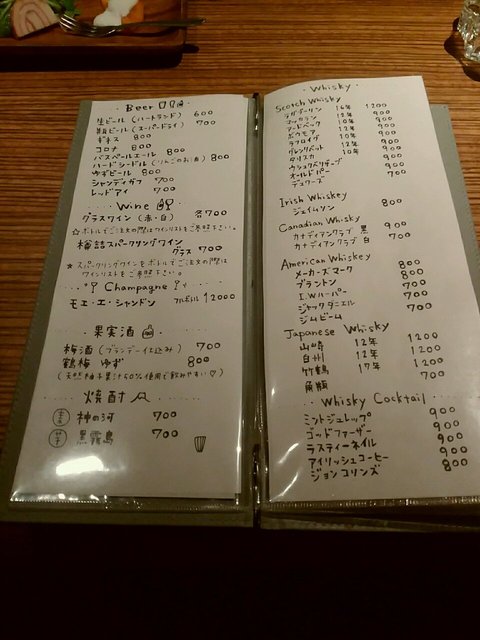 Beer
生ビール (ハートランド) 600
瓶ビール (スーパードライ) 700
ギネス 800
コロナ 800
バスペールエール 800
ハードシードル (りんごのお酒) 800
ゆずビール 800
シャンディガフ 700
レッドアイ 700
Wine
グラスワイン (赤・白) 各700
☆ボトルでご注文の際はワインリストをご参照下さい。
樽詰スパークリングワイン
グラス 700
★スパークリングワインをボトルでご注文の際は
ワインリストをご参照下さい。
Champagne
モエ・エ・シャンドン フルボトル 12000
果実酒
梅酒 (ブランデー仕込み) 700
鶴梅 ゆず 800
(天然柚子果汁40%使用で飲みやすい♡)
焼酎
麦 神の河 700
芋 黒霧島 700
Whisky
Scotch Whisky
ラガヴーリン 16年 1200
マッカラン 12年 900
アードベック 10年 900
ボウモア 12年 900
ラフロイグ 10年 900
グレンリベット 12年 900
タリスカ 10年 900
ウシュクベリザーブ 900
オールドパー 900
デュワーズ 700
Irish Whiskey
ジェイムソン 800
Canadian Whisky
カナディアンクラブ 黒 900
カナディアンクラブ 白 700
American Whiskey
メーカーズマーク 800
ブラントン 900
I.Wハーパー 700
ジャックダニエル 700
ジムビーム 700
Japanese Whisky
山崎 12年 1200
白州 12年 1200
竹鶴 17年 1200
角瓶 700
Whisky Cocktail
ミントジュレップ 900
ゴッドファーザー 900
ラスティーネイル 900
アイリッシュコーヒー 900
ジョンコリンズ 800